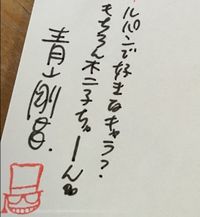 ルパンで好きなキャラ?
もちろん不二子ちゃーん
青山剛昌.